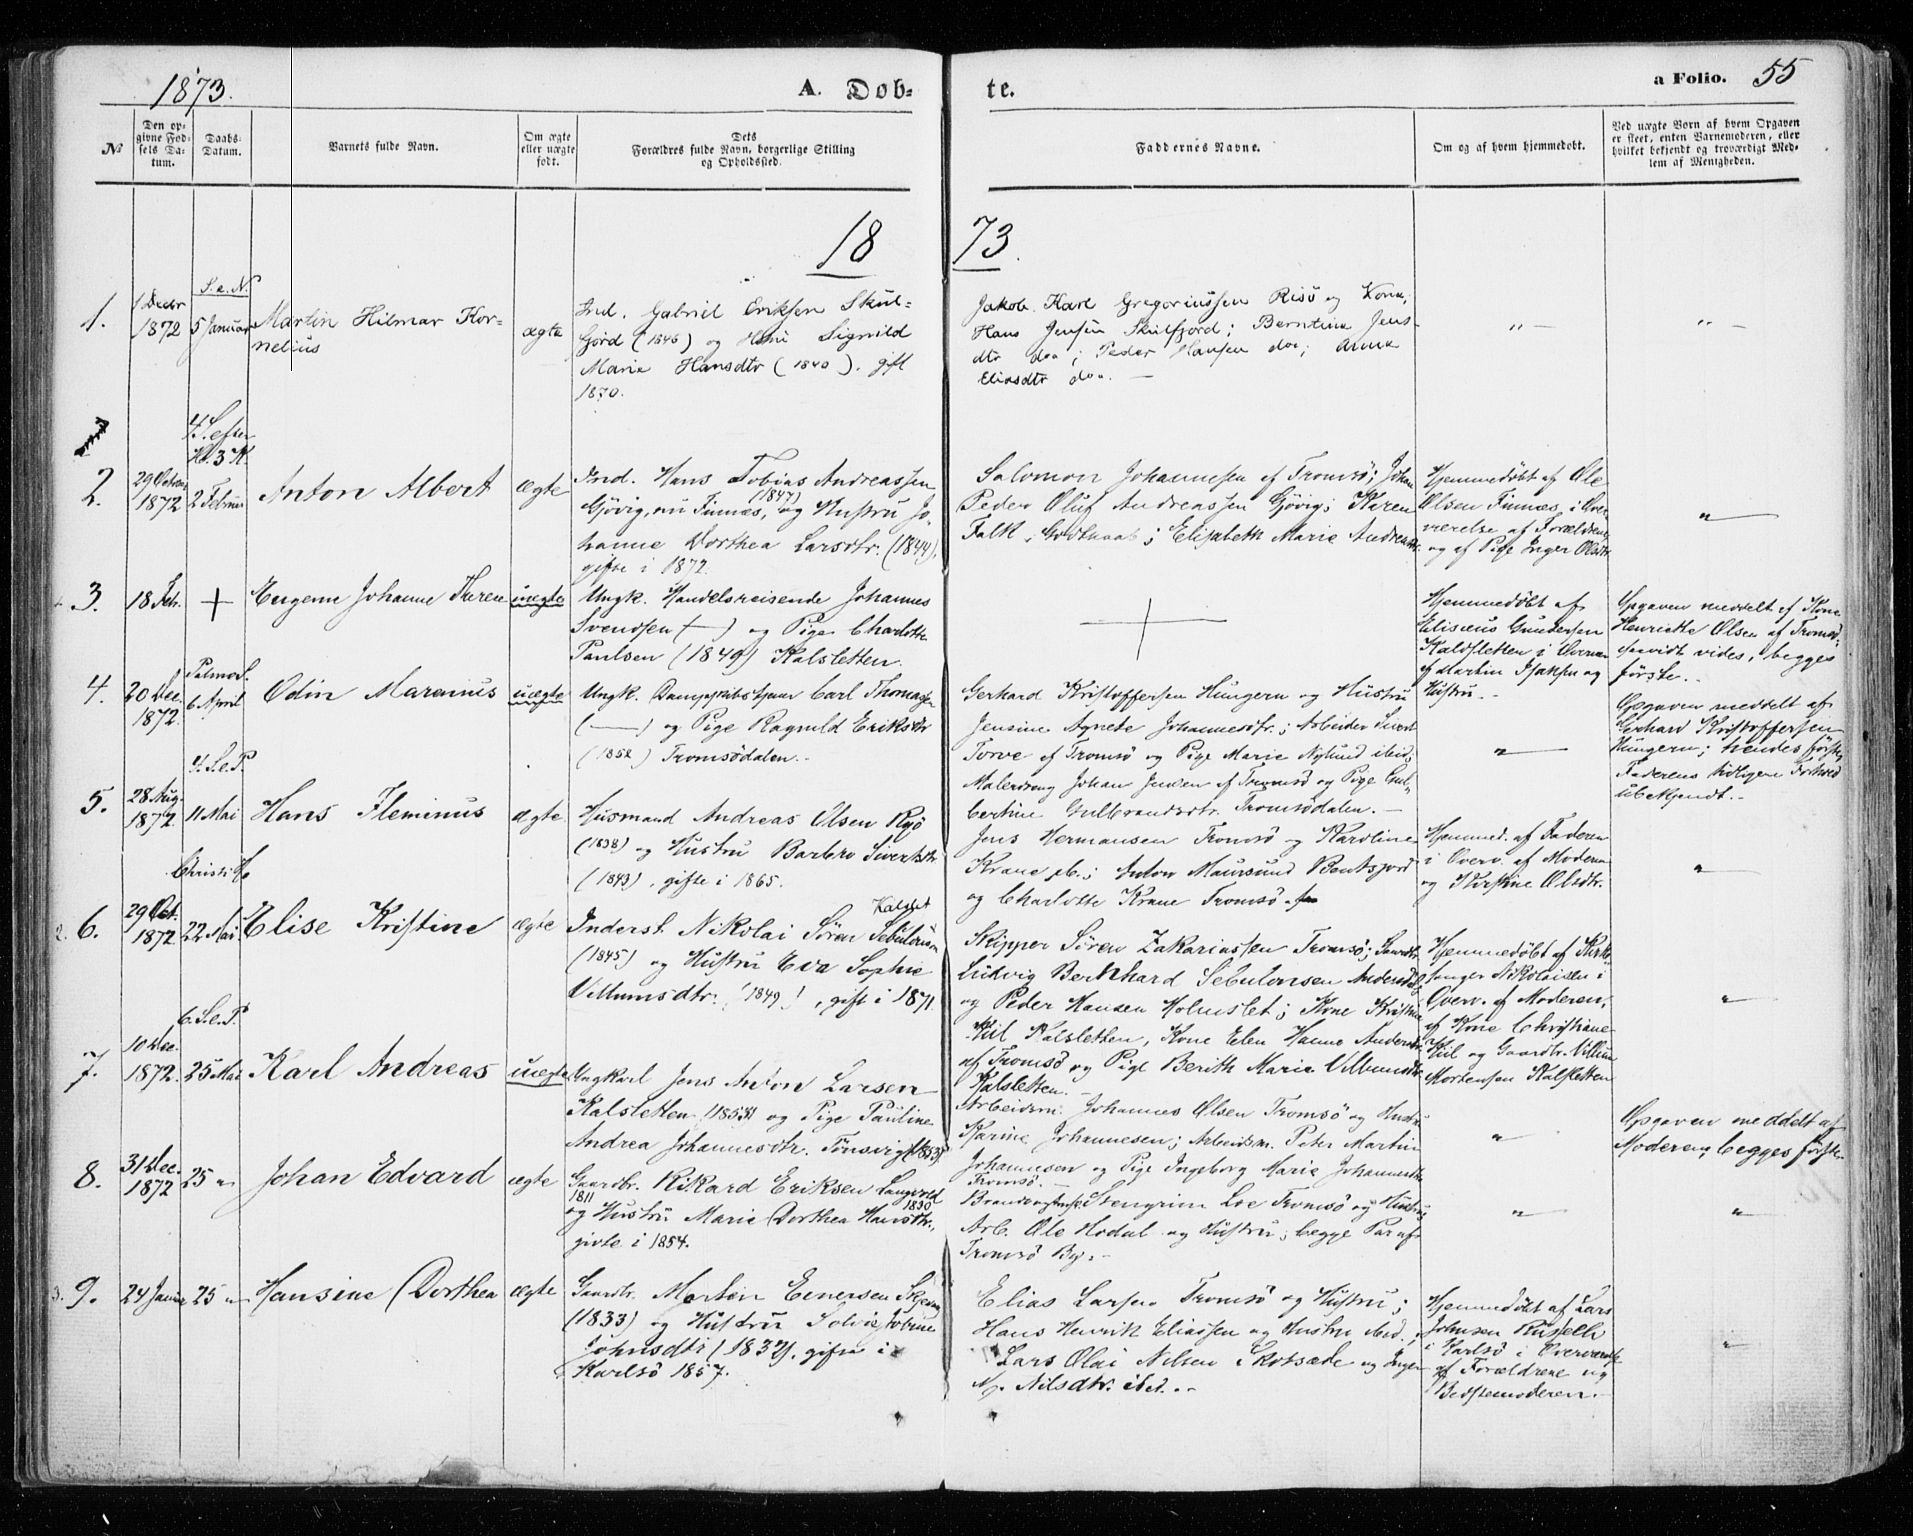 1873.
A. Døb-
te.
a Folio. 55
№
Den op-
givne Fød-
sels Da-
tum.
Daabs-
Datum.
Barnets fulde Navn.
Om ægte
eller uægte
født.
Dets
Forældres fulde Navn, borgerlige Stilling
og Opholdssted.
Faddernes Navne.
Om og af hvem hjemmedøbt.
Ved uægte Børn af hvem Opgaven
er skeet, enten Barnemoderen, eller
hvilket bekjendt og troværdigt Med-
lem af Menigheden.
18 73.
1.
1 Decbr
1872
S. e. N.
5 Januar
Martin Hilmar Kor-
nelius
ægte
Ind. Gabriel Eriksen Skul-
fjord (1845) og Signild
Marie Hansdtr (1840). gift
1870.
Jakob Karl Gregoriussen Risö og Kone;
Hans Jensen Skulfjord; Berntine Jens-
dtr do.; Peder Hansen do.; Anna
Eliasdtr do. —
" —
" —
2.
29 October
1872
4. S. efter
H. 3 K.
2 Februar
Anton Albert
ægte
Ind. Hans Tobias Andreassen
(1847)
Gjövig, nu Finnæs, og Hustru Jo-
hanne Dorthea Larsdtr. (1844),
gifte i 1872.
Salomon Johannesen af Tromsö; Johan
Peder Oluf Andreassen Gjövig; Karen
Falk, Godthaab; Elisabeth Marie Andreasdtr.
Hjemmedöbt af Ole
Olsen Finnæs, i Over-
værelse af Forældrene
og af Pige Inger Olsdtr.
" —
3.
18 Febr.
+
Eugenie Johanne Therese
uægte
Ungk. Handelsreisende Johannes
Svendsen (—) og Pige Charlotte
Paulsen (1849) Kalsletten.
+
Hjemmedöbt af
Elisæus Gundersen
Kaldsletten i Overvær.
af Martin Isaksen og
Hustru. -
Opgaven meddelt af Kone
Henriette Olsen af Tromsö;
saavidt vides, begges
förste. -
4.
20 Dec.
1872.
Palmes.
6 April
Odin Marenius
uægte
Ungk. Carl Thomassen
(—) og Pige Ragnild Eriksdtr
(1852) Tromsödalen.
Gerhard Kristoffersen Hungern og Hustru
Jensine Agnete Johannesdtr.; Arbeider Sivert
Torve af Tromsö og Pige Marie Nylund ibid;
Malerdreng Johan Jensen af Tromsö og Pige Gul-
bertine Gulbrandsdtr. Tromsödalen. —
" —
Opgaven meddelt af
Gerhard Kristoffersen
Hungern; hendes förste,
Faderens tidligere Forhold
ubekjendt. -
5.
28 Aug.
1872.
4. S. e. P.
11 Mai
Hans Fleminus
ægte
Husmand Andreas Olsen Ryö
(1838) og Hustru Barbro Sivertsdtr
(1843), gifte i 1865.
Jens Hermansen Tromsö og Karoline
Krane ib.; Anton Maursund Bentsjord
og Charlotte Krane Tromsö.
Hjemmed. af Faderen
i Overv. af Moderen
og Kirstine Olsdtr.
" —
6.
29 Oct.
1872
Christi H.
22 Mai
Elise Kristine
ægte
Kalslet
Inderst. Nikolai Sören Sebulonsen
(1845) og Hustru Eva Sophie
Villumsdtr. (1849), gift i 1871.
Skipper Sören Zakariassen Tromsö; Gaardbr.
Ludvig Bernhard Sebulonsen Andersdal
og Peder Hansen Holmslet; Kone Kristine
Kiil Kalsletten, Kone Elen Hanna Andersdtr.
af Tromsö og Pige Berith Marie Villumsdtr.
Kalsletten. -
Hjemmedöbt af Kirke-
sanger Nikolaisen i
Overv. af Moderen,
af Kone Christiane
Kiil og Gaardbr. Villum
Mortensen Kalsletten
" —
7.
10 Dec.
1872.
6. S. e. P.
25 Mai
Karl Andreas
uægte
Ungkarl Jens Anton Larsen
Kalsletten (1853) og Pige Pauline
Andrea Johannesdtr. Tönsvig (1853)
Arbeidsm. Johannes Olsen Tromsö og Hustru
Karine Johannesen; Arbeidsm. Peter Martin
Johannesen og Pige Ingeborg Marie Johannesdtr
Tromsö. —
" —
Opgaven meddelt af
Moderen, begges förste.
8.
31 Dec.
1872
25 "
Johan Edvard
ægte
Gaardbr. Rikard Eriksen Langvold
1811 1830
og Hustru Marie Dorthea Hansdtr.,
givte i 1854.
Stengrim Loe Tromsö og Hustru;
Arb. Ole Hodal og Hustru; begge Par af
Tromsö By. -
" —
" —
9.
24 Januar
25 "
Hansine Dorthea
ægte
Gaardbr. Morten Einersen
(1833) og Hustru
Johnsdtr (1832), gifte i
Karlsö 1857.
Elias Larsen Tromsö og Hustru;
Hans Henrik Eliassen og Hustru ibid.;
Lars Olai Nilsen Skotsæde og Inger
M. Nilsdtr. ibid. -
Hjemmedöbt af Lars
Johnsen
i Karlsö i Overværelse
af Forældrene og
Bedstemoderen. -
" —